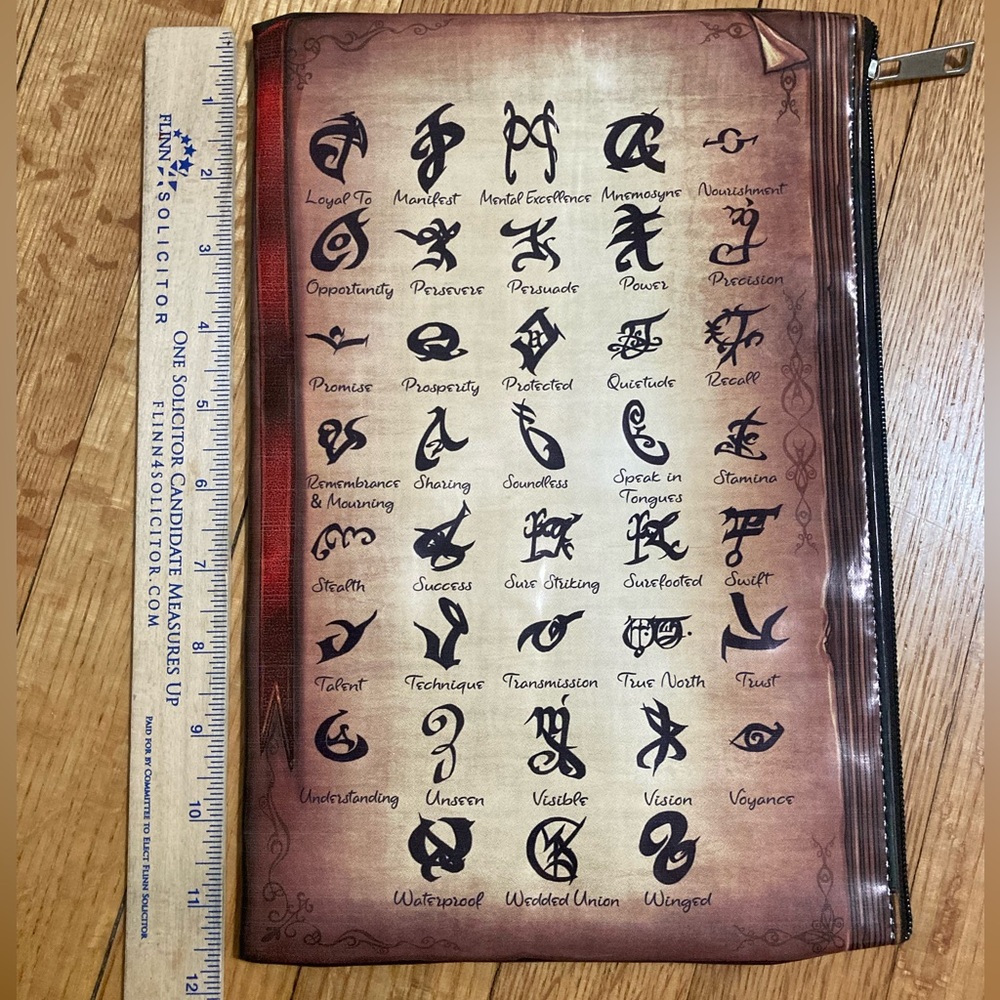 1
2
3
4
5
6
7
8
9
10
11
12
FLINN
SOLICITOR
ONE SOLICITOR CANDIDATE MEASURES UP
FLINN4SOLICITOR.COM
PAID FOR BY COMMITTEE TO ELECT FLINN SOLICITOR
Loyal To Manifest Mental Excellence Mnemosyne Nourishment
Opportunity Persevere Persuade Power Precision
Promise Prosperity Protected Quietude Recall
Remembrance
& Mourning
Sharing Soundless
Speak in
Tongues
Stamina
Stealth Success Sure Striking Surefooted Swift
Talent Technique Transmission True North Trust
Understanding Unseen Visible Vision Voyance
Waterproof Wedded Union Winged